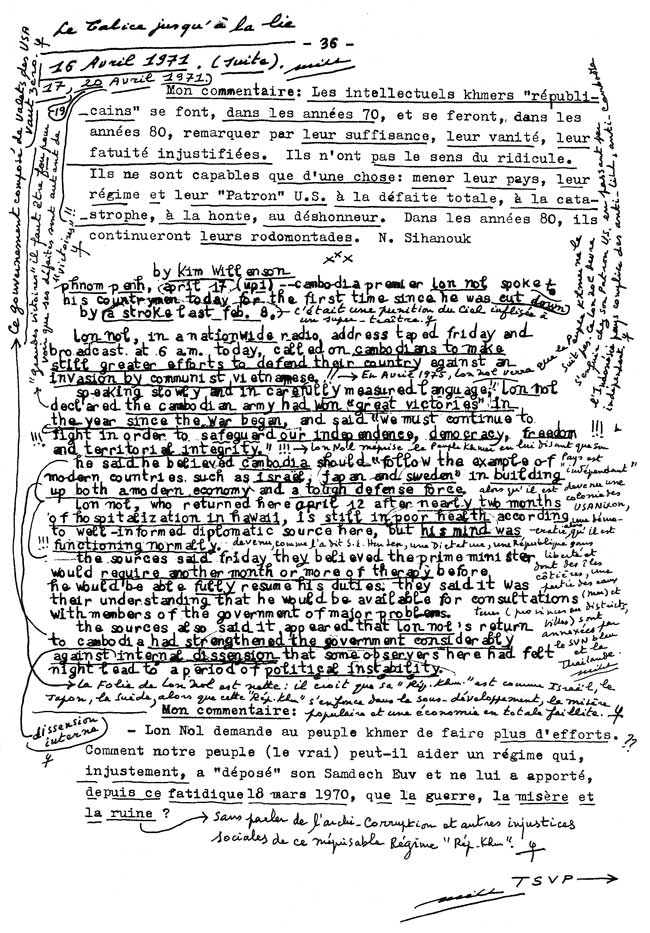 Le Calice jusqu'à la lie
- 36 -
16 Avril 1971. (suite).
17, 20 Avril 1971.)
Mon commentaire: Les intellectuels khmers "républi-
cains" se font, dans les années 70, et se feront, dans les
années 80, remarquer par leur suffisance, leur vanité, leur
fatuité injustifiées. Ils n'ont pas le sens du ridicule.
Ils ne sont capables que d'une chose: mener leur pays, leur
régime et leur "Patron" U.S. à la défaite totale, à la cata-
strophe, à la honte, au déshonneur. Dans les années 80, ils
continueront leurs rodomontades. N. Sihanouk
xxx
by Kim Willenson
phnom penh, april 17 (upi) --cambodia premier lon nol spoke to
his countrymen today for the first time since he was cut down
by a stroke last feb. 8.
c'était une punition du Ciel infligée à
un super-traître.
lon nol, in a nationwide radio address taped friday and
broadcast at 6 a.m. today, called on cambodians to make
still greater efforts to defend their country against an
invasion by communist vietnamese.
!! → En Avril 1975, Lon Nol verra que le Peuple Khmer ne le
suit pas
speaking slowly and in carefully measured language, lon nol
declared the cambodian army had won "great victories" in
the year since the war began, and said "we must continue to
fight in order to safeguard our independence, democracy, freedom
and territorial integrity."
!!! → Lon Nol méprise le Peuple khmer en lui disant que son
Pays est "indépendant"
he said he believed cambodia should "follow the example of
modern countries such as israel, japan and sweden" in building
up both a modern economy and a tough defense force.
alors qu'il est devenu une
colonie des
USA Nixon,
lon nol, who returned here april 12 after nearly two months
of hospitalization in hawaii, is still in poor health according
to well-informed diplomatic source here, but his mind was
functioning normally.
the sources said friday they believed the prime minister
would require another month or more of therapy before
he would be able fully resume his duties. they said it was
their understanding that he would be available for consultations
with members of the government of major problems.
the sources also said it appeared that lon nol's return
to cambodia had strengthened the government considerably
against internal dissension that some observers here had felt
might lead to a period of political instability.
→ la Folie de Lon Nol est nette: il croit que sa "Rép. Khm." est comme Israël, le
Japon, la Suède, alors que cette "Rép. Kh" s'enfonce dans le sous-développement, la misère
populaire et une économie en totale faillite.
Mon commentaire:
dissension
interne
- Lon Nol demande au peuple khmer de faire plus d'efforts. ??
Comment notre peuple (le vrai) peut-il aider un régime qui,
injustement, a "déposé" son Samdech Euv et ne lui a apporté,
depuis ce fatidique 18 mars 1970, que la guerre, la misère et
la ruine ?
→ Sans parler de l'archi-Corruption et autres injustices
sociales de ce méprisable Régime "Rép. Khm".
TSVP →
Ce gouvernement composé de valets des USA
vaut zéro.
"grandes victoires" il faut être fou pour
voir que ses défaites sont autant de
"victoires" !!!